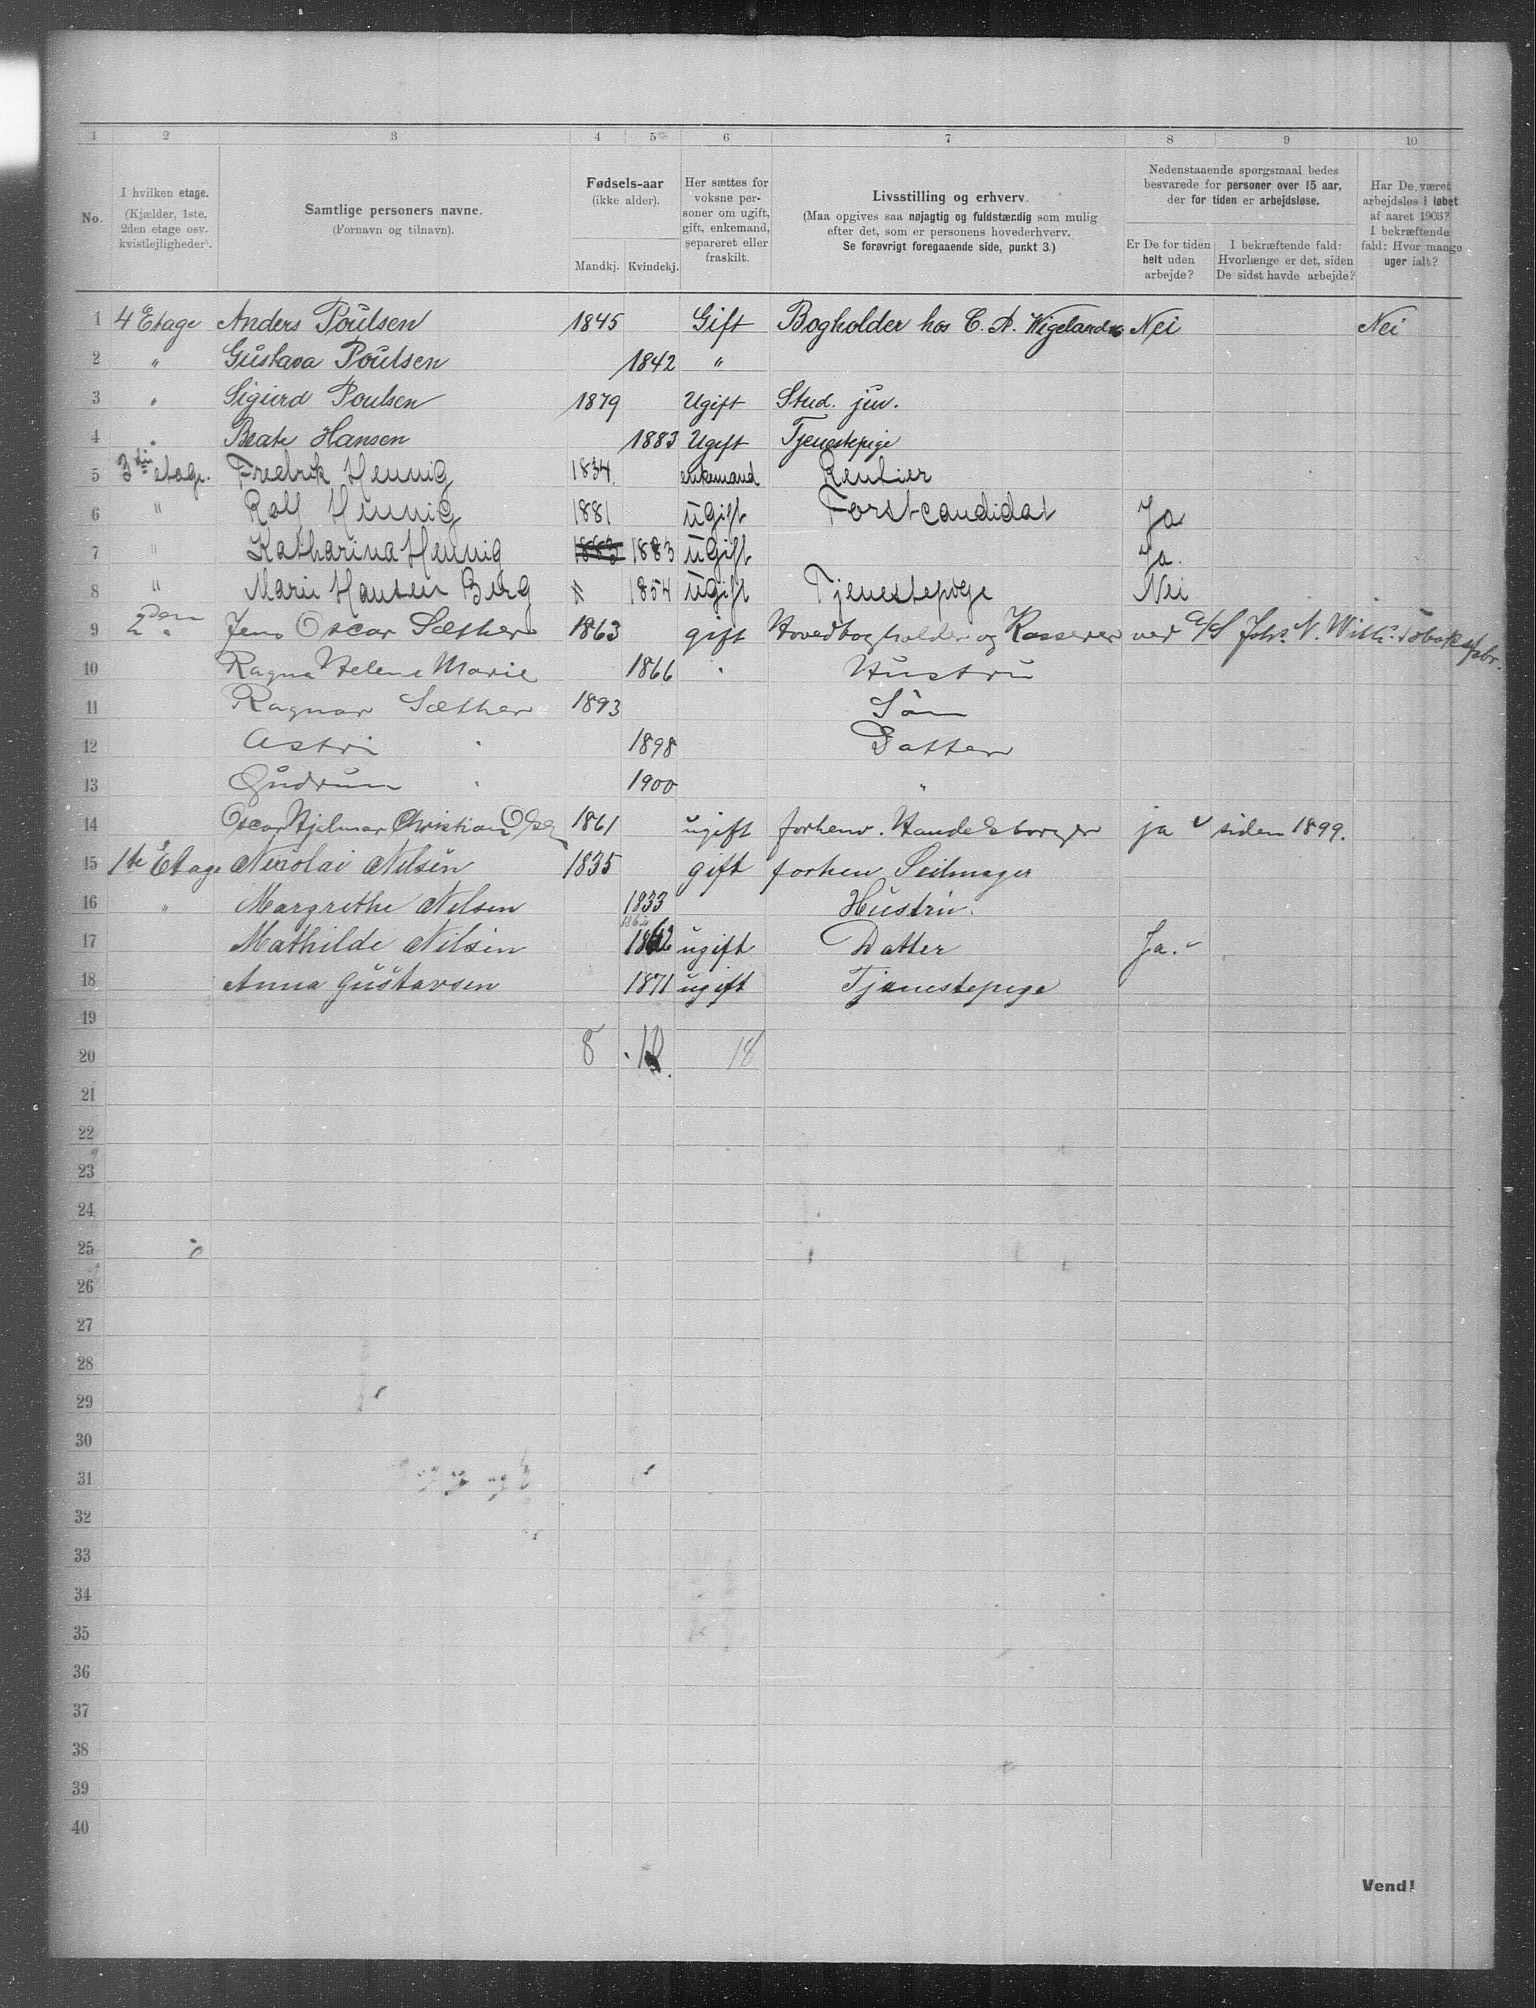 1 2 3 4 5 6 7 8 9 10
No.
I hvilken etage. (Kjælder, 1ste, 2den etage osv. kvistlejligheder).
Samtlige personers navne. (Fornavn og tilnavn).
Fødsels-aar (ikke alder). Mandkj. Kvindekj.
Her sættes for voksne personer om ugift, gift, enkemand, separeret eller fraskilt.
Livsstilling og erhverv. (Maa opgives saa nøjagtig og fuldstændig som mulig efter det, som er personens hovederhverv. Se forøvrigt foregaaende side, punkt 3.)
Nedenstaaende spørgsmaal bedes besvarede for personer over 15 aar, der for tiden er arbejdsløse.
Er De for tiden helt uden arbejde?
I bekræftende fald: Hvorlænge er det, siden De sidst havde arbejde?
Har De været arbejdsløs i løbet af aaret 1903? I bekræftende fald: Hvor mange uger ialt?
1 4 Etage Anders Poulsen 1845 Gift Bogholder hos C. A. Wigeland Nei Nei
2 " Gustava Poulsen 1842 "
3 " Sigurd Poulsen 1879 Ugift Stud. jur.
4 " Beate Hansen 1883 Ugift Tjenestepige
5 3die etage. Fredrik Hennig 1834 enkemand Rentier
6 " Rolf Hennig 1881 ugift Forstcandidat Ja
7 " Katharina Hennig 1883 1883 ugift Ja.
8 " Marie Hansen Berg 1854 ugift Tjenestepige Nei
9 2den " Jens Oscar Sæther 1863 gift Hovedbogholder og Kasserer ved A/S Johs. N. With's Tobaksfabr.
10 Ragna Helene Marie 1866 " Hustru
11 Ragnar Sæther 1893 Søn
12 Astri " 1898 Datter
13 Gudrun " 1900 "
14 Oscar Hjalmar Christian 1861 ugift forhenv. Handelsborger ja siden 1899.
15 1ste Etage Nikolai Nilsen 1835 gift forhen Seilmager
16 " Margrethe Nilsen 1833 Hustru.
1862
17 Mathilde Nilsen 1862 ugift Datter Ja.
18 Anna Gustavsen 1871 ugift Tjenestepige
19
20 8 10 18
21
22
23
24
25
26
27
28
29
30
31
32
33
34
35
36
37
38
39
40
Vend!